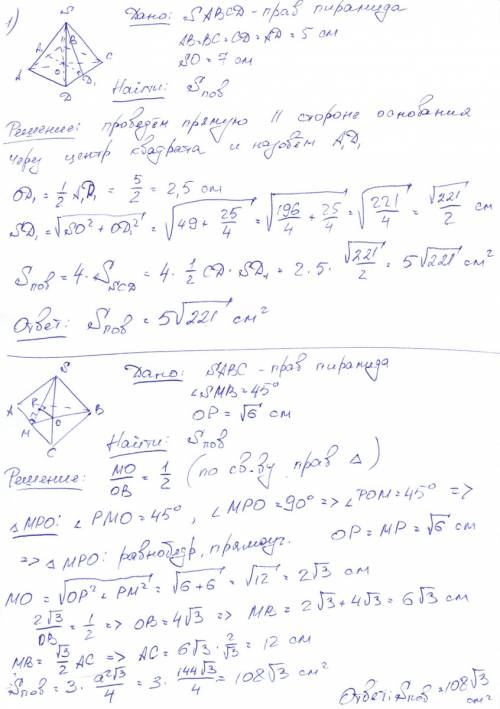 1)
Дано: SABCD - прав пирамида
AB=BC=CD=AD=5 см
SO=7 см
Найти: Sпов
Решение: проведём прямую || стороне основания
через центр квадрата и назовём A₁D₁
OD₁ = 1/2 A₁D₁ = 5/2 = 2,5 см
SD₁ = √(SO²+OD₁²) = √(49+25/4) = √(196/4+25/4) = √(221/4) = √221/2 см
Sпов = 4·S_SCD = 4·1/2 CD·SD₁ = 2·5·√221/2 = 5√221 см²
Ответ: Sпов = 5√221 см²
Дано: SABC - прав пирамида
∠SMB=45°
OP = √6 см
Найти: Sпов
Решение: MO/OB = 1/2 (по св-ву прав △)
△MPO: ∠PMO=45°, ∠MPO=90° => ∠POM=45° =>
=> △MPO: равнобедр, прямоуг. OP=MP=√6 см
MO = √(OP²+PM²) = √(6+6) = √12 = 2√3 см
2√3/OB = 1/2 => OB=4√3 => MB = 2√3+4√3 = 6√3 см
MB = √3/2 AC => AC = 6√3·2/√3 = 12 см
Sпов = 3·a²√3/4 = 3·144√3/4 = 108√3 см²
Ответ: Sпов = 108√3 см²
S
A
B
C
D
O
A₁
D₁
S
A
B
C
M
P
O